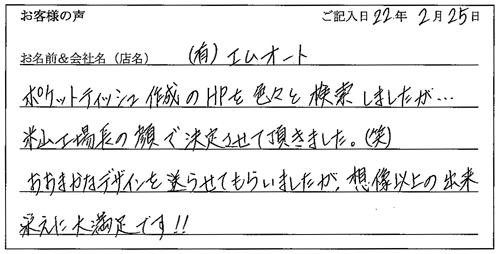 お客様の声 ご記入日 22年 2月 25日
お名前&会社名（店名） (有) エムオート
ポケットティッシュ作成のHPを色々と検索しましたが…
米山工場長の顔で決定させて頂きました。(笑)
おおまかなデザインを送らせてもらいましたが、想像以上の出来
栄えに大満足です!!